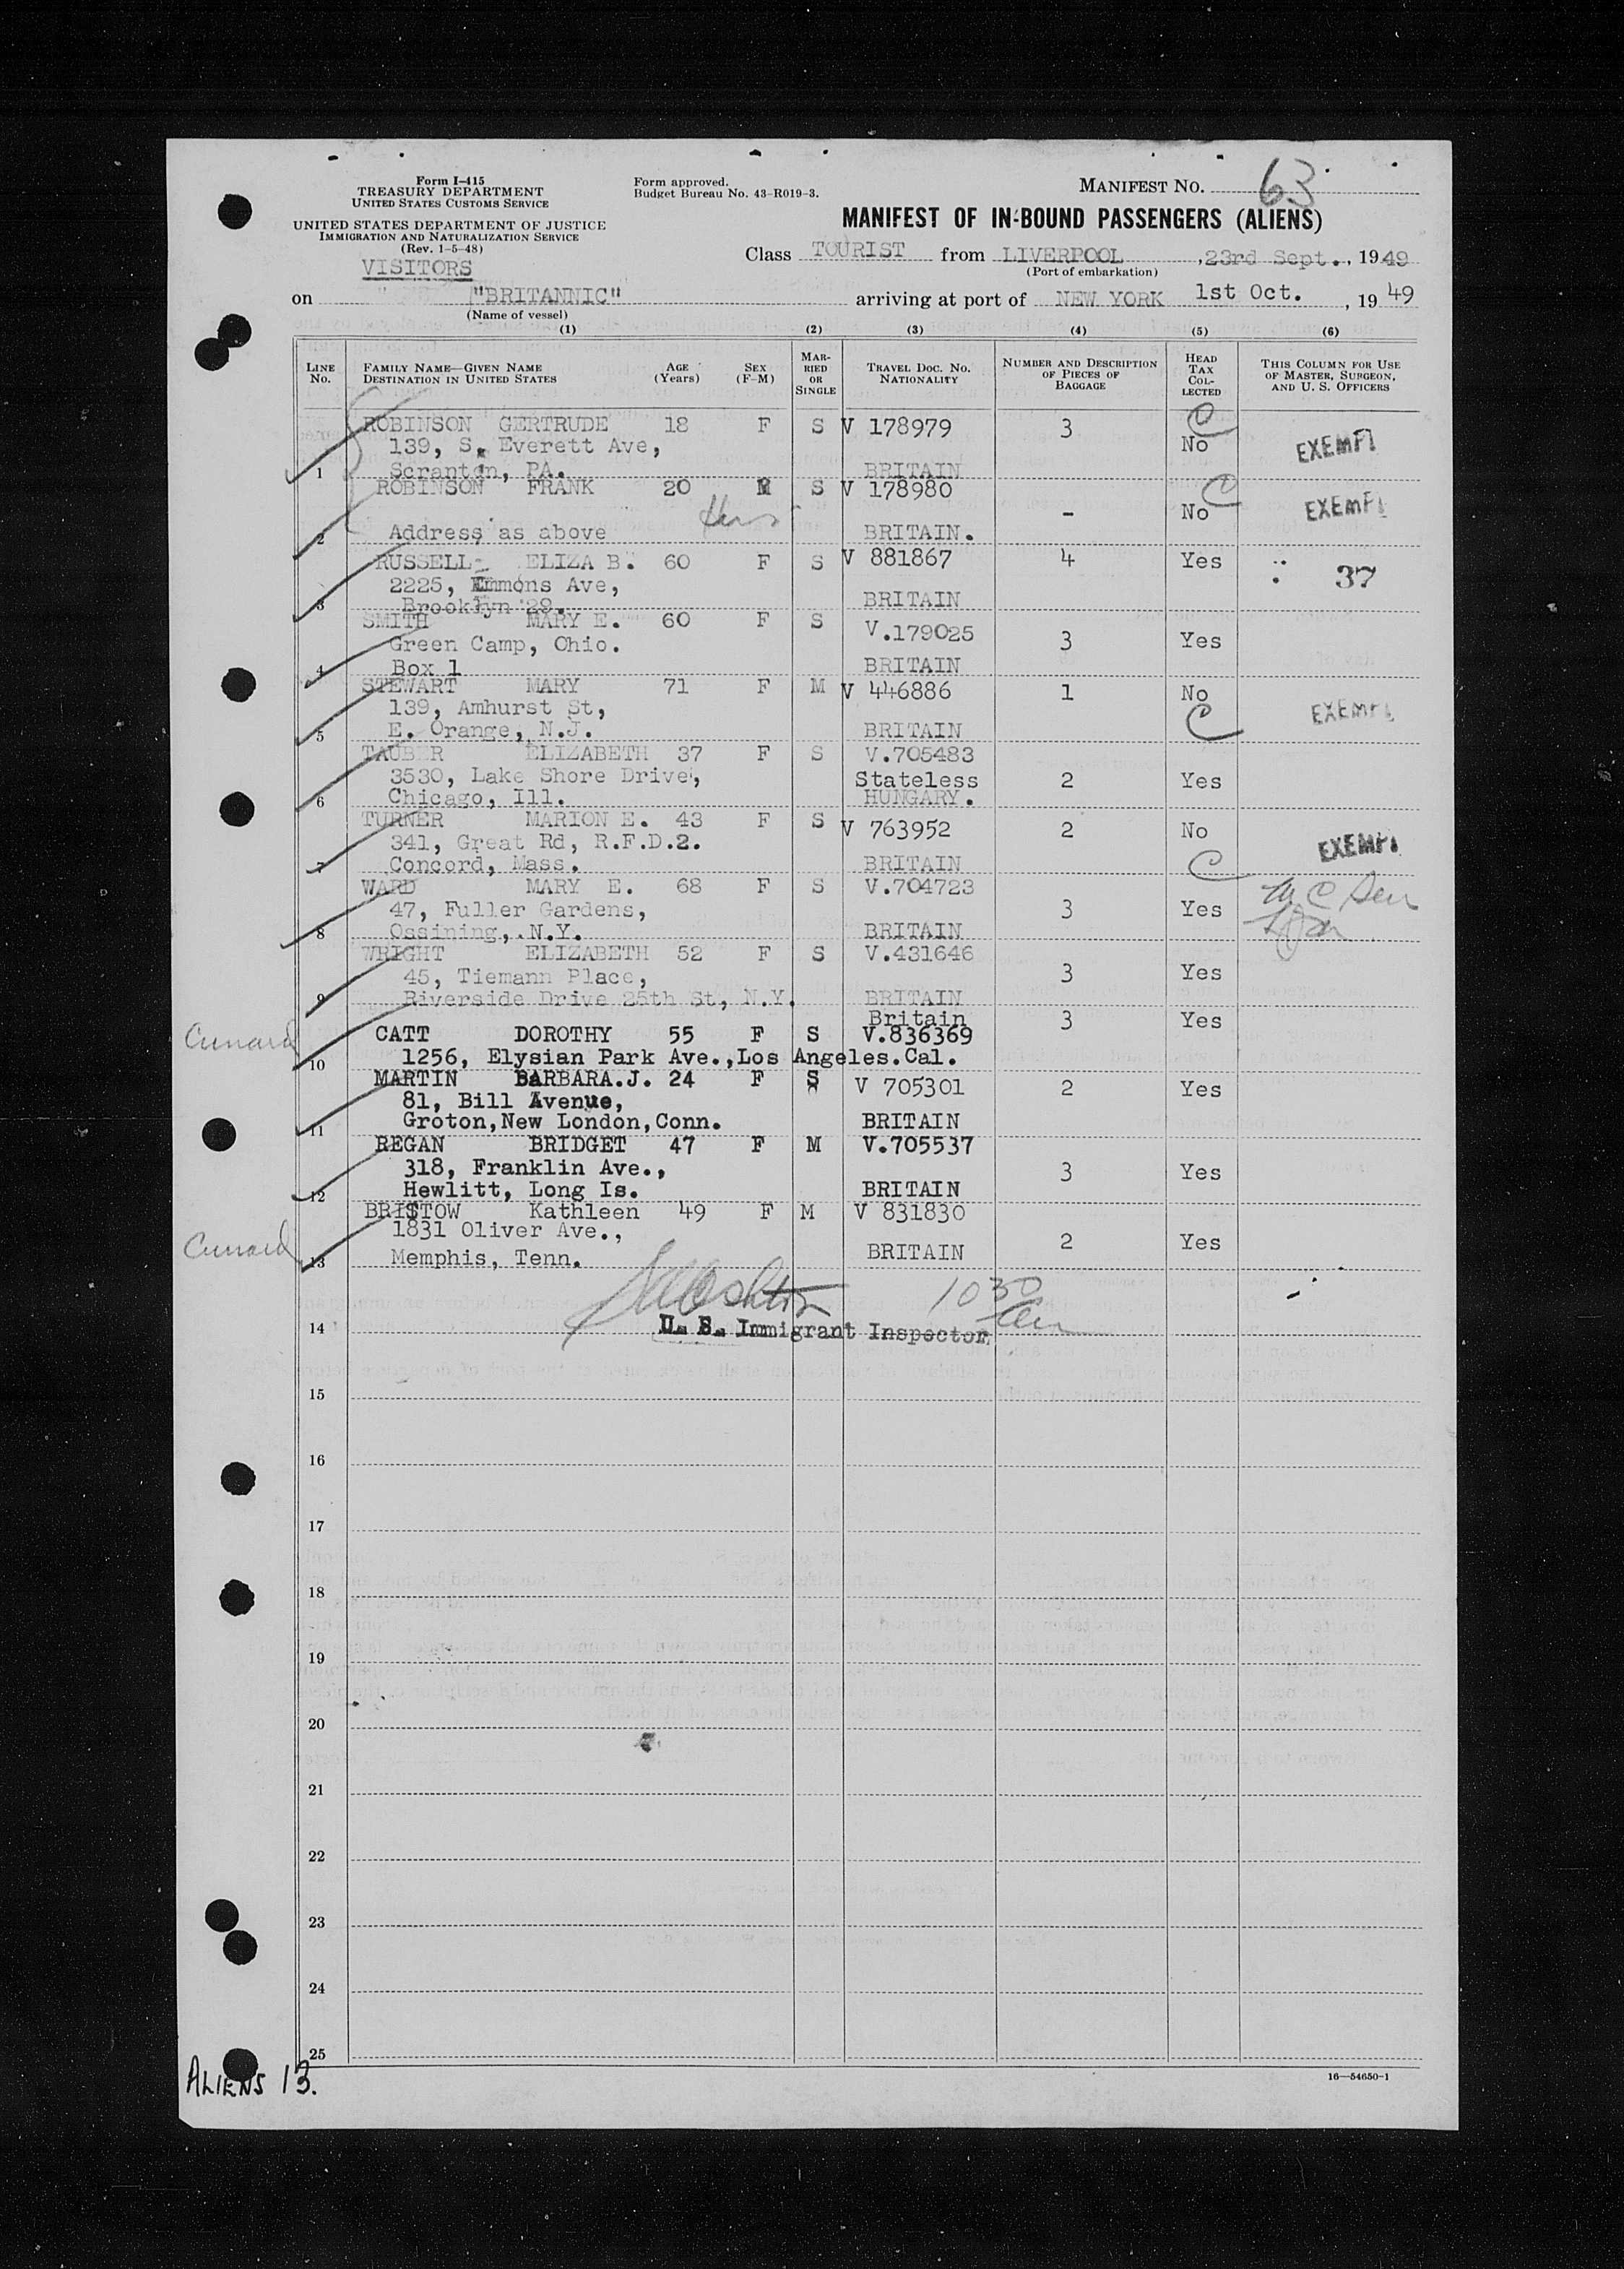 Form I-415
TREASURY DEPARTMENT
UNITED STATES CUSTOMS SERVICE
UNITED STATES DEPARTMENT OF JUSTICE
IMMIGRATION AND NATURALIZATION SERVICE
(Rev. 1-5-48)
VISITORS
Form approved.
Budget Bureau No. 43-R019-3.
MANIFEST NO. 63
MANIFEST OF IN-BOUND PASSENGERS (ALIENS)
Class TOURIST from LIVERPOOL, 23rd Sept., 1949
(Port of embarkation)
on "BRITANNIC" arriving at port of NEW YORK 1st Oct., 1949
(Name of vessel)
(1) (2) (3) (4) (5) (6)
LINE No. FAMILY NAME—GIVEN NAME DESTINATION IN UNITED STATES AGE (Years) SEX (F-M) MARRIED OR SINGLE TRAVEL DOC. NO. NATIONALITY NUMBER AND DESCRIPTION OF PIECES OF BAGGAGE HEAD TAX COLLECTED THIS COLUMN FOR USE OF MASTER, SURGEON, AND U. S. OFFICERS
ROBINSON GERTRUDE 18 F S V 178979 3 C
139, S. Everett Ave, No EXEMPT
1 Scranton, PA. BRITAIN
ROBINSON FRANK 20 M S V 178980 C
- No EXEMPT
2 Address as above BRITAIN.
RUSSELL ELIZA B. 60 F S V 881867 4 Yes
2225, Emmons Ave, 37
3 Brooklyn 29. BRITAIN
SMITH MARY E. 60 F S V.179025
Green Camp, Ohio. 3 Yes
4 Box 1 BRITAIN
STEWART MARY 71 F M V 446886 1 No
139, Amhurst St, C EXEMPT
5 E. Orange, N.J. BRITAIN
TAUBER ELIZABETH 37 F S V.705483
3530, Lake Shore Drive, Stateless 2 Yes
6 Chicago, Ill. HUNGARY.
TURNER MARION E. 43 F S V 763952 2 No
341, Great Rd, R.F.D.2. EXEMPT
7 Concord, Mass. BRITAIN C
WARD MARY E. 68 F S V.704723
47, Fuller Gardens, 3 Yes
8 Ossining, N.Y. BRITAIN
WRIGHT ELIZABETH 52 F S V.431646
45, Tiemann Place, 3 Yes
9 Riverside Drive 25th St, N.Y. BRITAIN
Britain 3 Yes
Cunard CATT DOROTHY 55 F S V.836369
10 1256, Elysian Park Ave., Los Angeles. Cal.
MARTIN BARBARA.J. 24 F S V 705301 2 Yes
81, Bill Avenue,
11 Groton, New London, Conn. BRITAIN
REGAN BRIDGET 47 F M V.705537
318, Franklin Ave., 3 Yes
12 Hewlitt, Long Is. BRITAIN
BRISTOW Kathleen 49 F M V 831830
Cunard 1831 Oliver Ave., 2 Yes
13 Memphis, Tenn. BRITAIN
1030
14 U. S. Immigrant Inspector
15
16
17
18
19
20
21
22
23
24
25
ALIENS 13.
16—54650-1